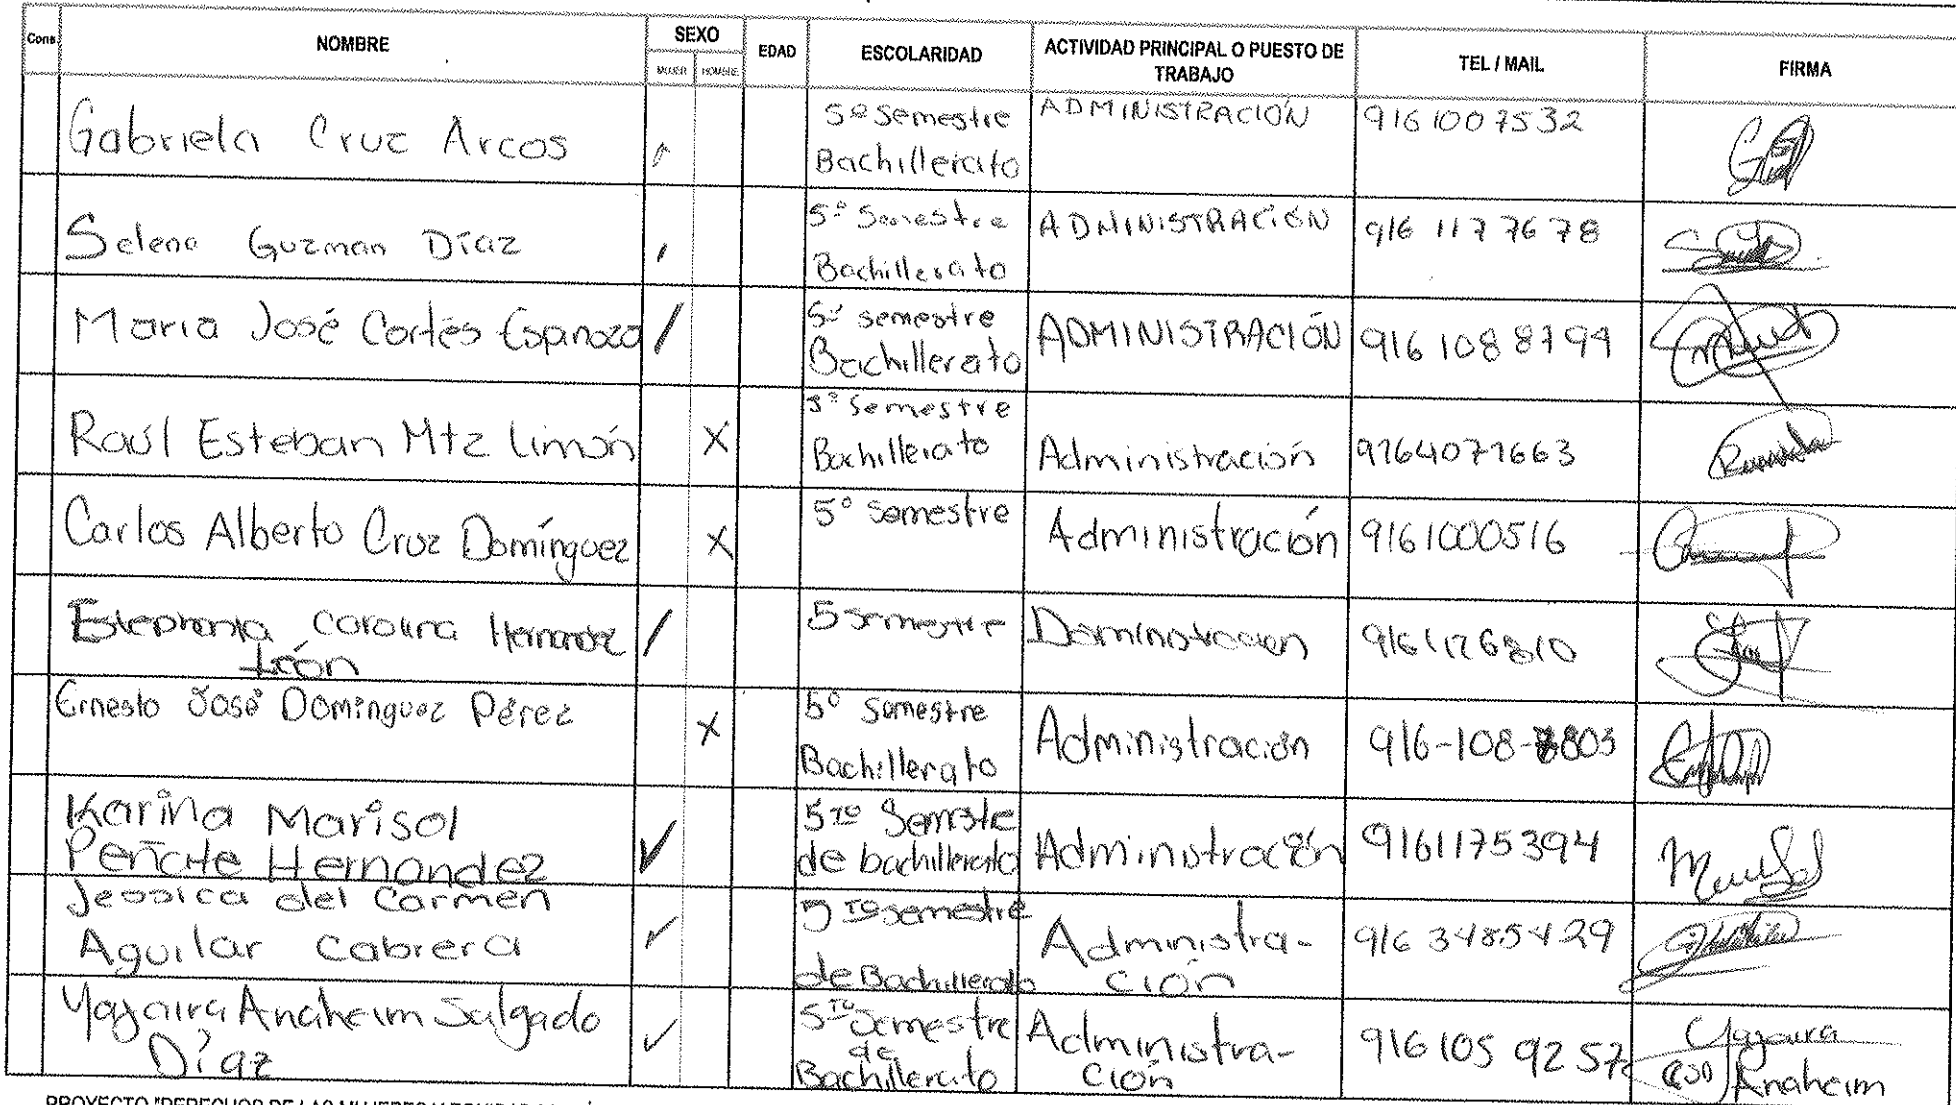 Cons NOMBRE SEXO EDAD ESCOLARIDAD ACTIVIDAD PRINCIPAL O PUESTO DE TRABAJO TEL / MAIL FIRMA
MUJER HOMBRE
Gabriela Cruz Arcos 5º Semestre Bachillerato ADMINISTRACIÓN 9161007532
Selena Guzman Díaz 5º Semestre Bachillerato ADMINISTRACIÓN 916 117 76 78
Maria José Cortés Espinoza 5º semestre Bachillerato ADMINISTRACIÓN 916 108 8794
Raúl Esteban Mtz Limón X 5º Semestre Bachillerato Administración 9164071663
Carlos Alberto Cruz Domínguez X 5º semestre Administración 9161000516
Estephania Carolina Hernandez León 5 semestre 9161176810
Ernesto José Dominguez Pérez X 5º Semestre Bachillerato Administración 916-108-8803
Karina Marisol Peñate Hernandez 5to Semestre de bachillerato Administración 9161175394
Jessica del Carmen Aguilar Cabrera 5to semestre de Bachillerato Administra-ción 916 3485429
Yajaira Anaheim Salgado Díaz 5to Semestre de Bachillerato Administra-ción 916 105 92 57 Yajaira Anaheim
PROYECTO "DERECHOS DE LAS MUJERES